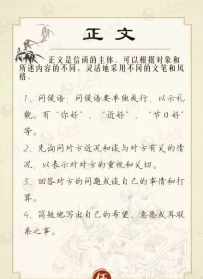 正文
正文是信函的主体，可以根据对象和
所述内容的不同，灵活地采用不同的文笔和风
格。
1、问候语：问候语要单独成行，以示礼
貌。有“你好”、“近好”、“节日好”
等。
2、先询问对方近况和谈与对方有关的情
况，以表示对对方的重视和关切。
3、回答对方的问题或谈自己的事情和打
算。
4、简短地写出自己的希望、意愿或再联
系之事。